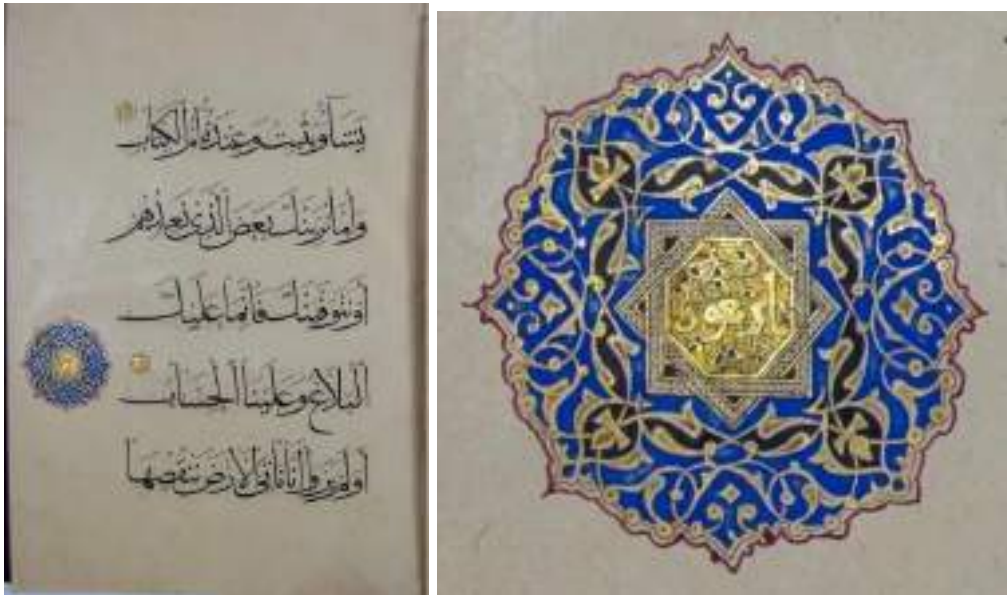 يشا ويثبت وعنده أم الكتاب
واما نرينك بعض الذي نعدهم
او نتوفينك فانما عليك
البلاغ وعلينا الحساب
اولم يروا انا ناتي الارض ننقصها